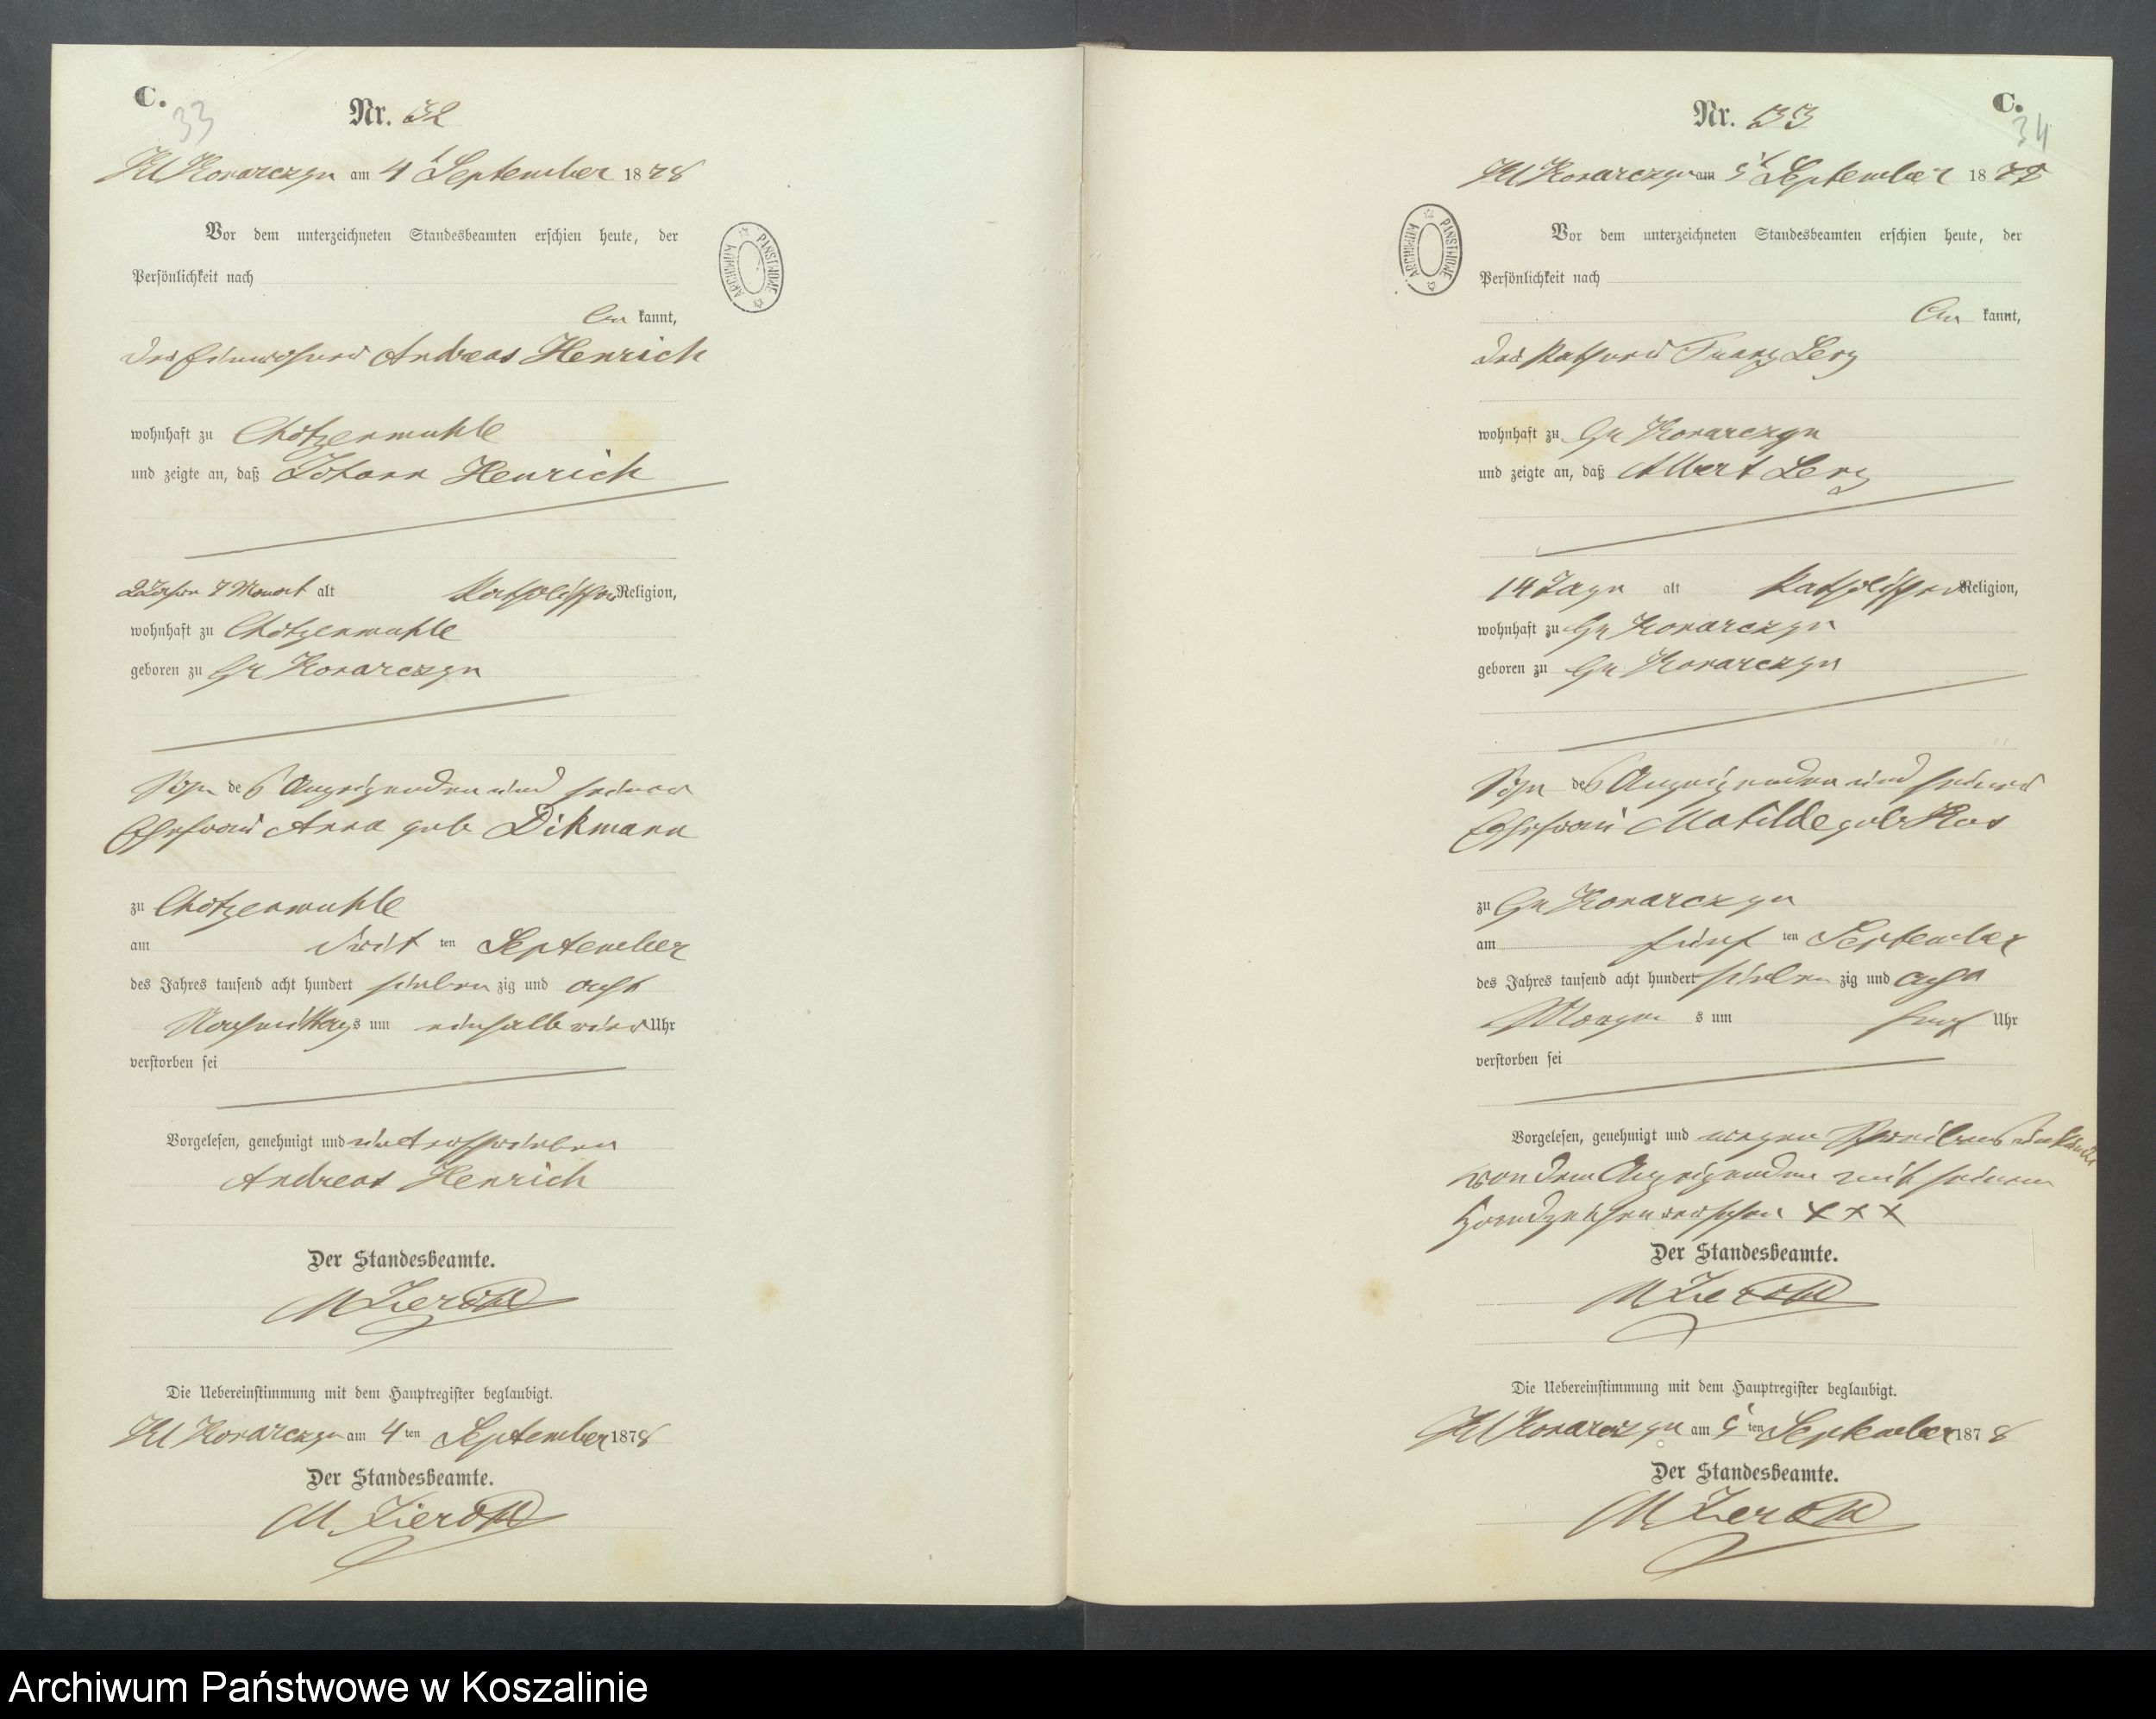 C.
33
Nr. 32
Kl Konarczyn am 4 t September 1878
Vor dem unterzeichneten Standesbeamten erschien heute, der
Persönlichkeit nach
be kannt,
der Einwohner Andreas Henrich
wohnhaft zu Chotzenmühle
und zeigte an, daß Johann Henrich
2 Jahr 7 Monat alt katholischer Religion,
wohnhaft zu Chotzenmuhle
geboren zu Gr Konarczyn
Sohn des Anzeigenden und seiner
Ehefrau Anna geb Dikmann
zu Chotzenmuhle
am dritten September
des Jahres tausend acht hundert siebenzig und acht
Nachmittags um einhalb vier Uhr
verstorben sei
Vorgelesen, genehmigt und unterschrieben
Andreas Henrich
Der Standesbeamte.
Die Uebereinstimmung mit dem Hauptregister beglaubigt.
Kl Konarczyn am 4 ten September 1878
Der Standesbeamte.
ARCHIWUM PAŃSTWOWE
C.
34
Nr. 33
Kl Konarczyn am 5 t September 1878
Vor dem unterzeichneten Standesbeamten erschien heute, der
Persönlichkeit nach
be kannt,
der Franz
wohnhaft zu Gr Konarczyn
und zeigte an, daß Albert
14 Tage alt katholischer Religion,
wohnhaft zu Gr Konarczyn
geboren zu Gr Konarczyn
Sohn des Anzeigenden und seiner
Ehefrau Matilde geb
zu Gr Konarczyn
am fünften September
des Jahres tausend acht hundert siebenzig und acht
Morgens um fünf Uhr
verstorben sei
Vorgelesen, genehmigt und wegen Schreibens unkunde
von dem Anzeigenden mit seinem
Handzeichen versehen x x x
Der Standesbeamte.
Die Uebereinstimmung mit dem Hauptregister beglaubigt.
Kl Konarczyn am 5 ten September 1878
Der Standesbeamte.
ARCHIWUM PAŃSTWOWE
Archiwum Państwowe w Koszalinie